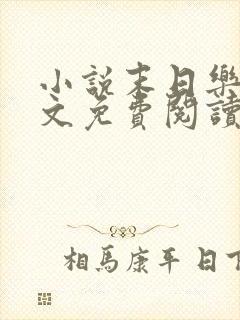 小說末日樂
文免費閱讀
相馬康平 日下